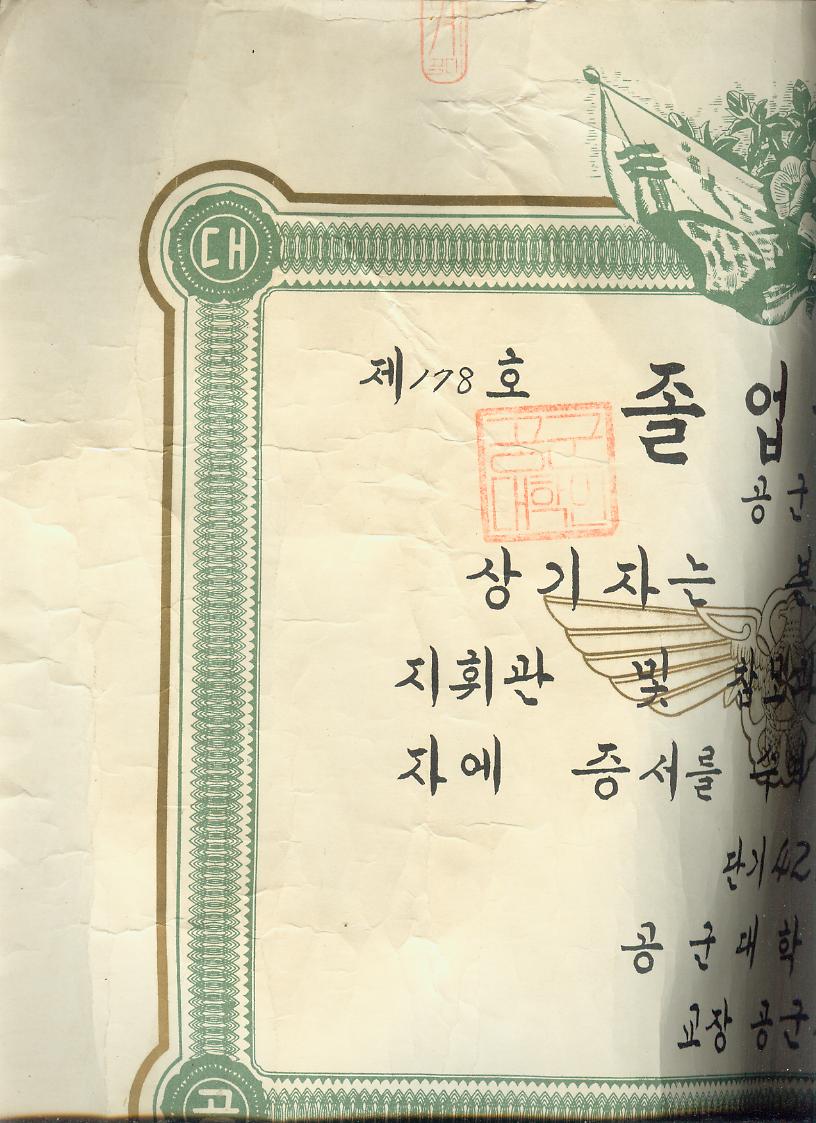 대
제178호
졸업
공군대학인
공군
상기자는
지휘관 및 참모과
자에 증서를
단기42
공군대학
교장 공군